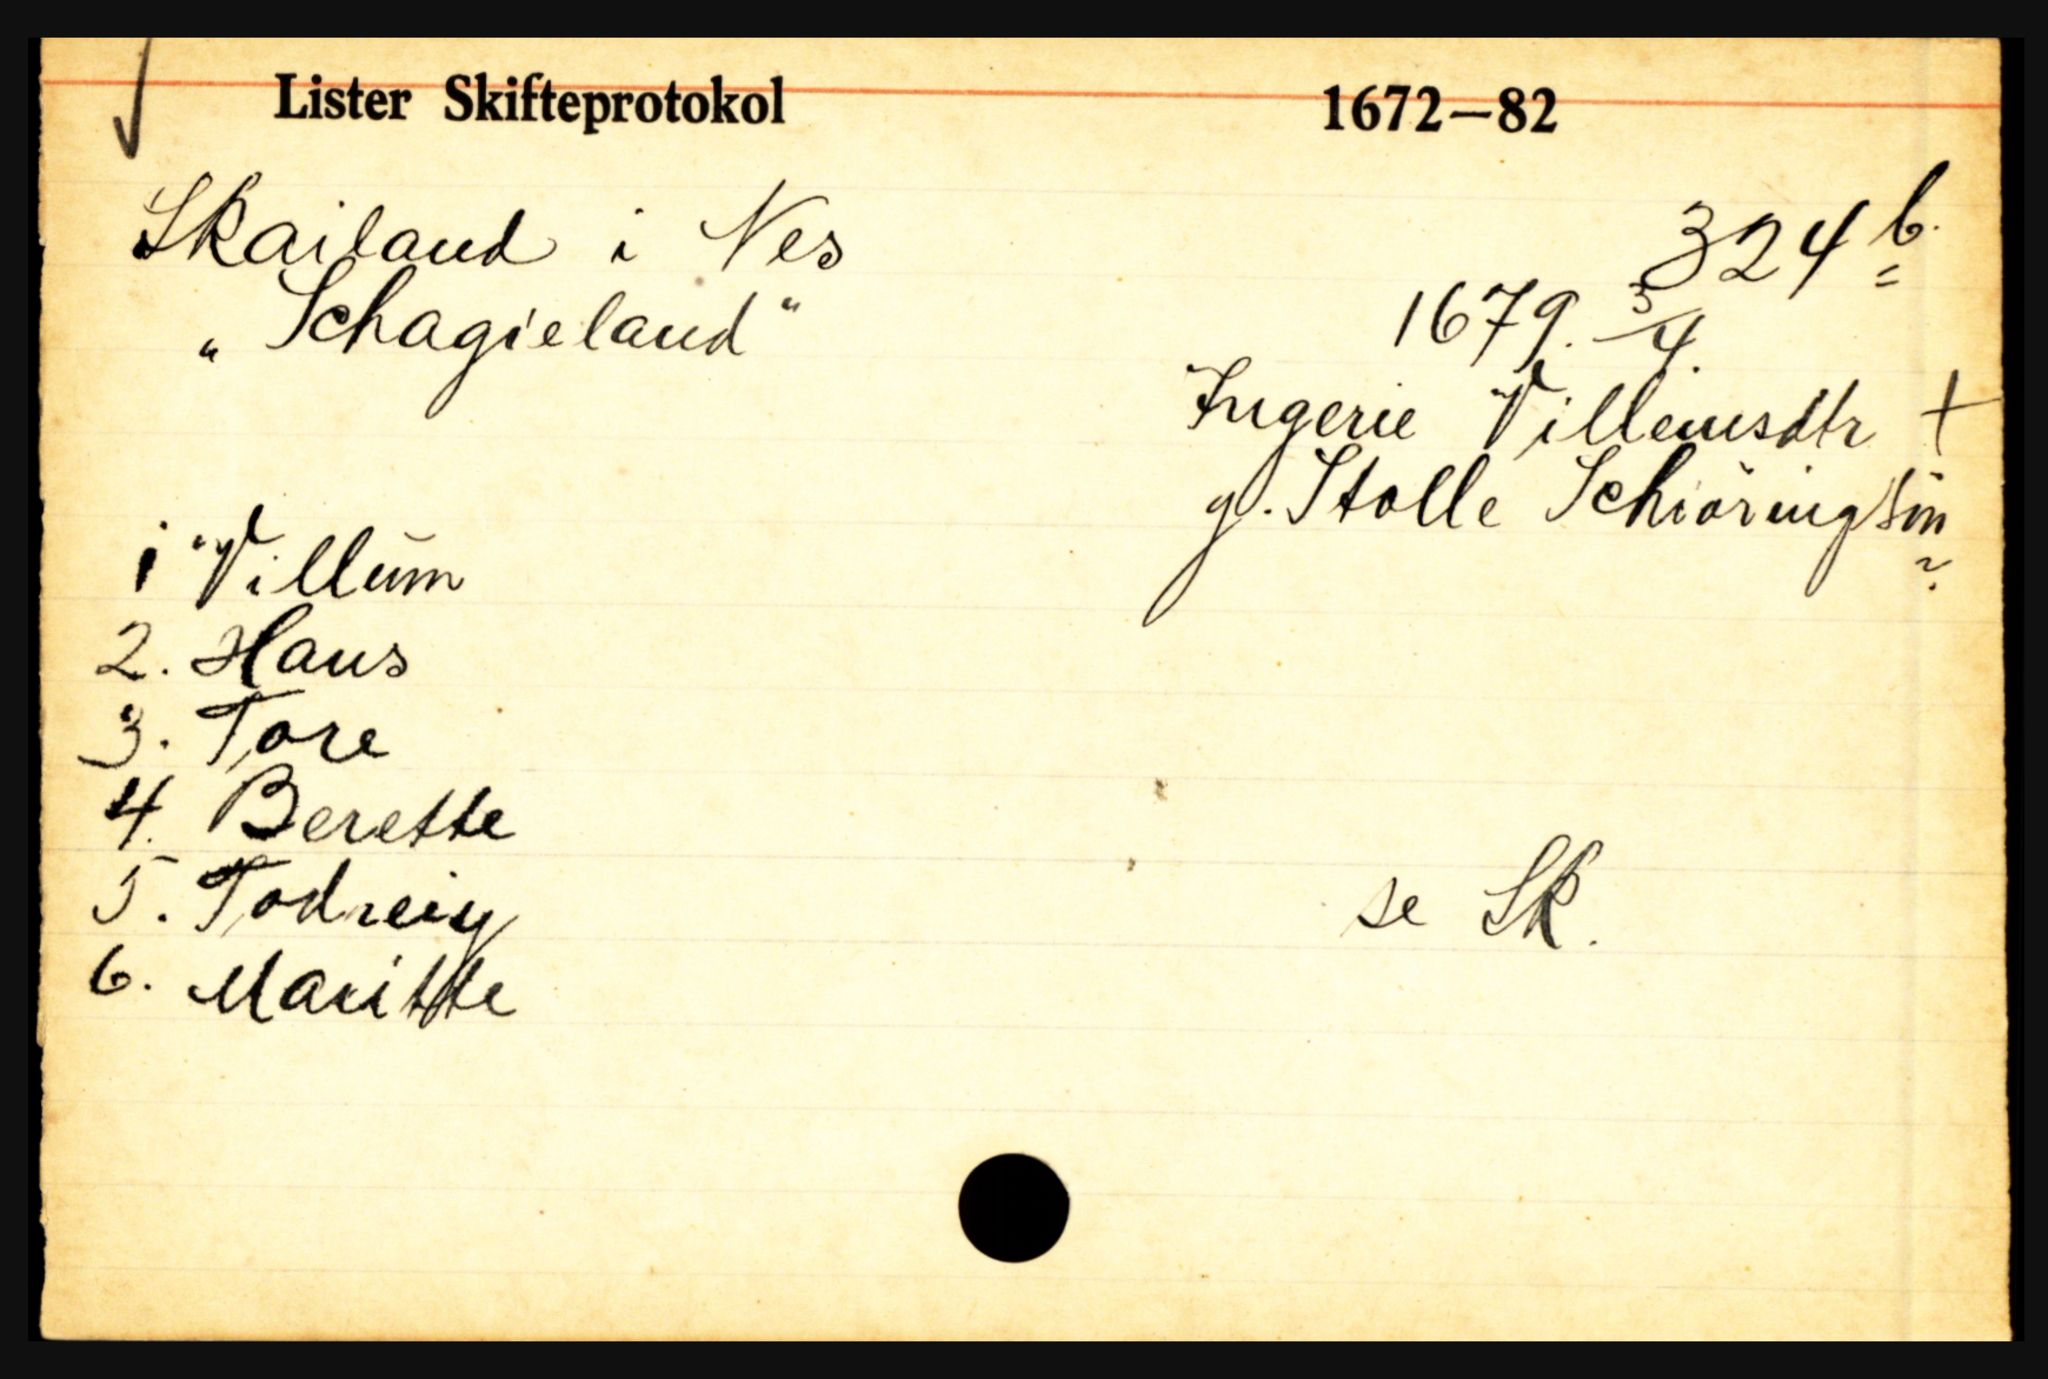 Lister Skifteprotokol 1672—82
Skailand i Nes 324 b.
„Schagieland“ 1679. 3/4.
Ingerie Villemsdtr +
g. Stolle Schiöringsön
1 Villum
2. Hans
3. Tore
4. Berette
5. Todneiy
6. Maritte
se Sk.